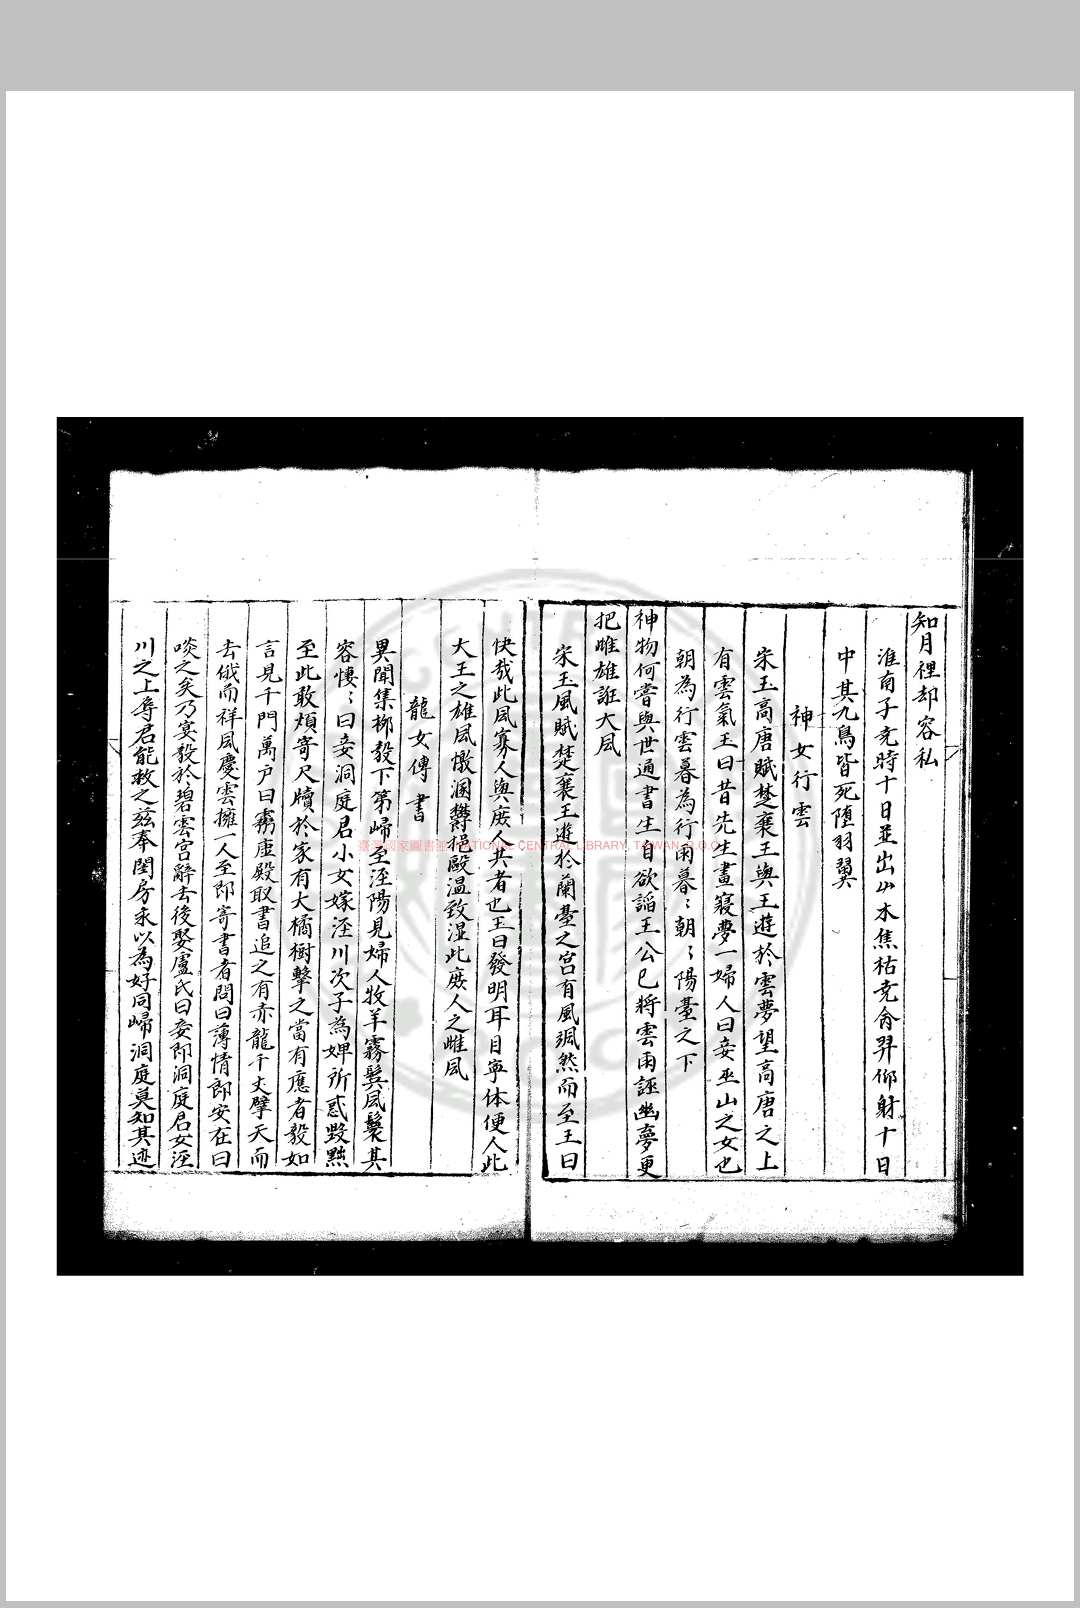 知月裡却容私
淮南子尭時十日並出屮木焦枯尭命羿仰射十日
中其九鳥皆死堕羽翼
神女行雲
宋玉高唐賦楚襄王與玉遊於雲夢望高唐之上
有雲氣玉曰昔先生晝寢夢一婦人曰妾巫山之女也
朝為行雲暮為行雨暮〻朝〻陽臺之下
神物何嘗與世通書生自欲謟王公巳將雲雨誣幽夢更
把雌雄誑大風
宋玉風賦楚襄王遊於蘭臺之宮有風颯然而至王曰
快哉此風寡人與庻人共者也玉曰發明耳目寧体便人此
大王之雄風憞溷欝挹毆温致湿此庻人之雌風
龍女傳書
異聞集栁毅下第歸至涇陽見婦人牧羊霧鬂風鬟其
容悽〻曰妾洞庭君小女嫁涇川次子為婢所惑毀黜
至此敢煩寄尺牘於家有大橘樹擊之當有應者毅如
言見千門萬户曰霛虚殿取書追之有赤龍千丈擘天而
去俄而祥風慶雲擁一人至即寄書者問曰薄情郎安在曰
啖之矣乃宴毅於碧雲宮辭去後娶盧氏曰妾即洞庭君女涇
川之上辱君能救之兹奉閨房永以為好同歸洞庭莫知其迹
臺灣國家圖書館 NATIONAL CENTRAL LIBRARY, TAIWAN, R.O.C.